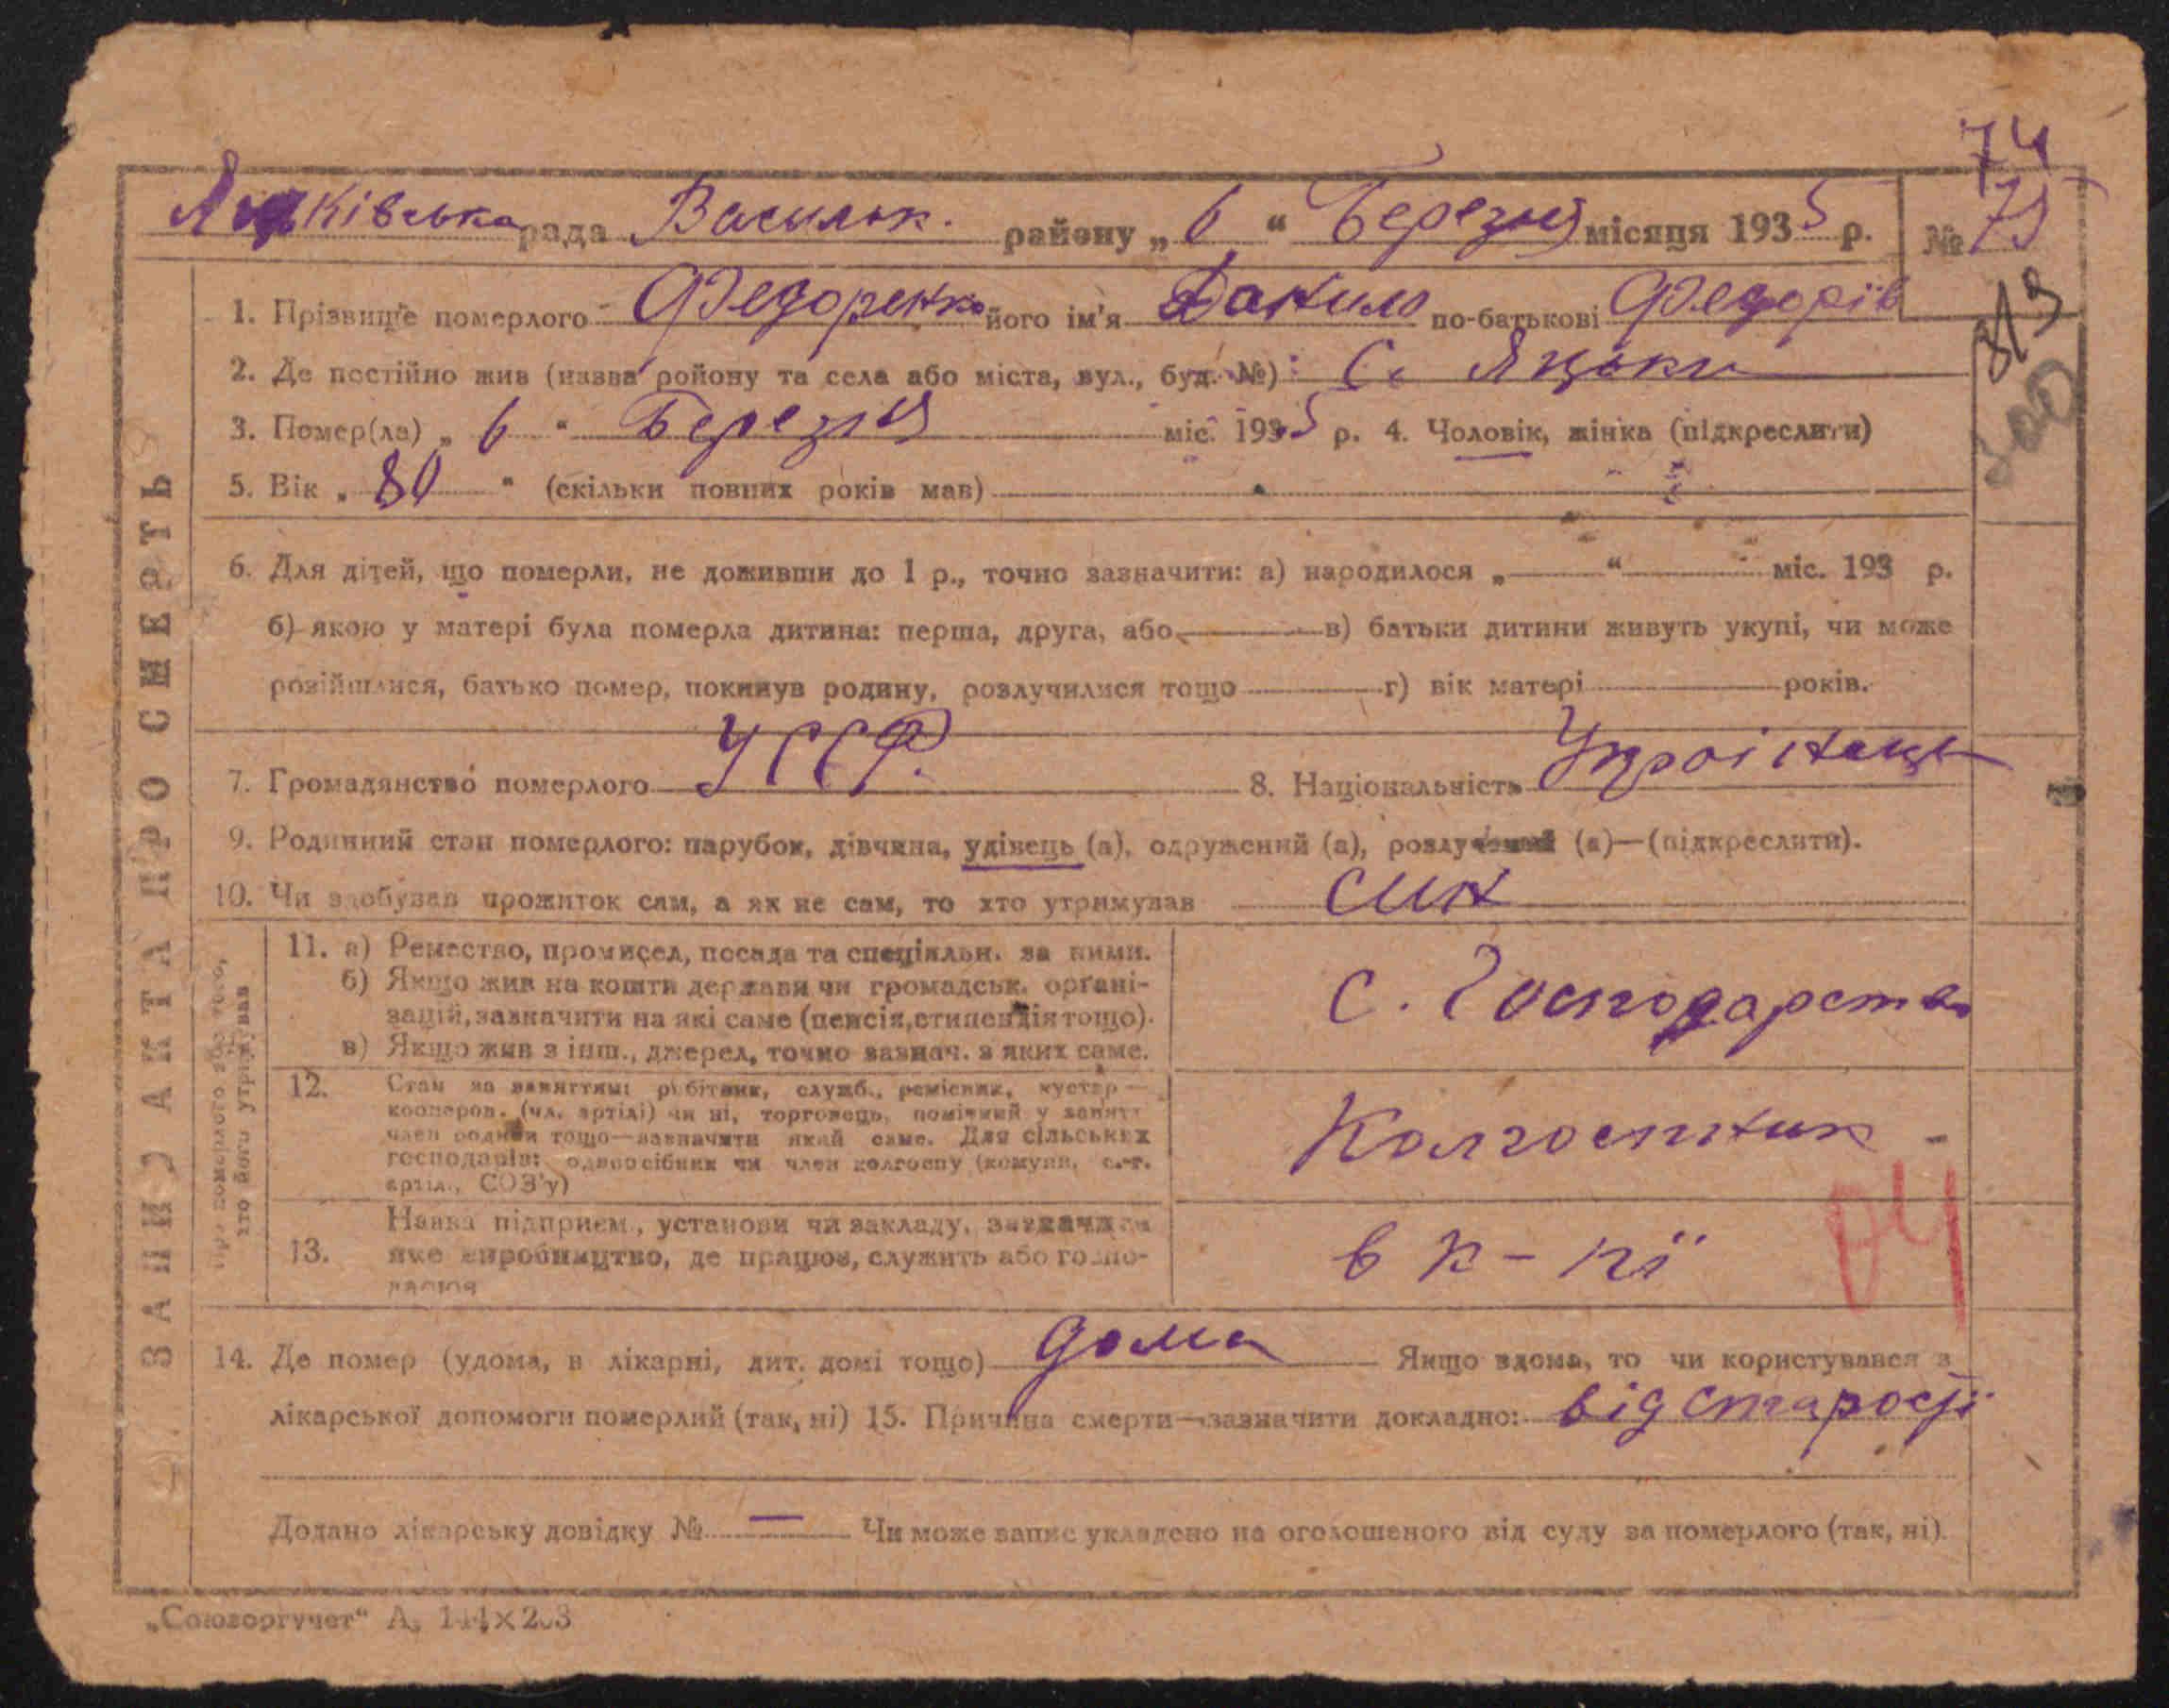 74
Яцьківська рада Васильк. району „ 6 “ Березня місяця 1935 р. № 75
1. Прізвище померлого Федоренко його ім'я Данило по-батькові Федорів
319
2. Де постійно жив (назва ройону та села або міста, вул., буд. №) С. Яцьки
300
3. Помер(ла) „ 6 “ Березня міс. 1935 р. 4. Чоловік, жінка (підкреслити)
5. Вік „ 80 “ (скільки повних років мав)
6. Для дітей, що померли, не доживши до 1 р., точно зазначити: а) народилося „ “ міс. 193 р.
б) якою у матері була померла дитина: перша, друга, або в) батьки дитини живуть укупі, чи може
розійшлися, батько помер, покинув родину, розлучилися тощо г) вік матері років.
7. Громадянство померлого УССР. 8. Національність Украінець
9. Родинний стан померлого: парубок, дівчина, удівець (а), одружений (а), розлучений (а)—(підкреслити).
10. Чи здобував прожиток сам, а як не сам, то хто утримував син
ЗАПИС АКТА ПРО СМЕРТЬ
хто його утримував
11. а) Ремество, промисел, посада та спеціяльн. за ними.
б) Якщо жив на кошти держави чи громадськ. органі-
зацій, зазначити на які саме (пенсія, стипендія тощо).
в) Якщо жив з інш., джерел, точно зазнач. з яких саме.
С. Господарство
12. Стан за заняттям: робітник, служб., ремісник, кустар —
кооперов. (чл. артілі) чи ні, торговець, помічний у занятт
член родини тощо—зазначити який саме. Для сільських
господарів: одноосібник чи член колгоспу (комуни, с.-г.
артіл., СОЗ'у)
Колгоспник -
13. Назва підприєм., установи чи закладу, зазначаючи
яке виробництво, де працює, служить або госпо-
в к-пі
04
14. Де помер (удома, в лікарні, дит. домі тощо) дома Якщо вдома, то чи користувався з
лікарської допомоги померлий (так, ні) 15. Причина смерти—зазначити докладно: від старості
Додано лікарську довідку № — Чи може запис укладено на оголошеного від суду за померлого (так, ні).
„Союзоргучет“ А5 144×203